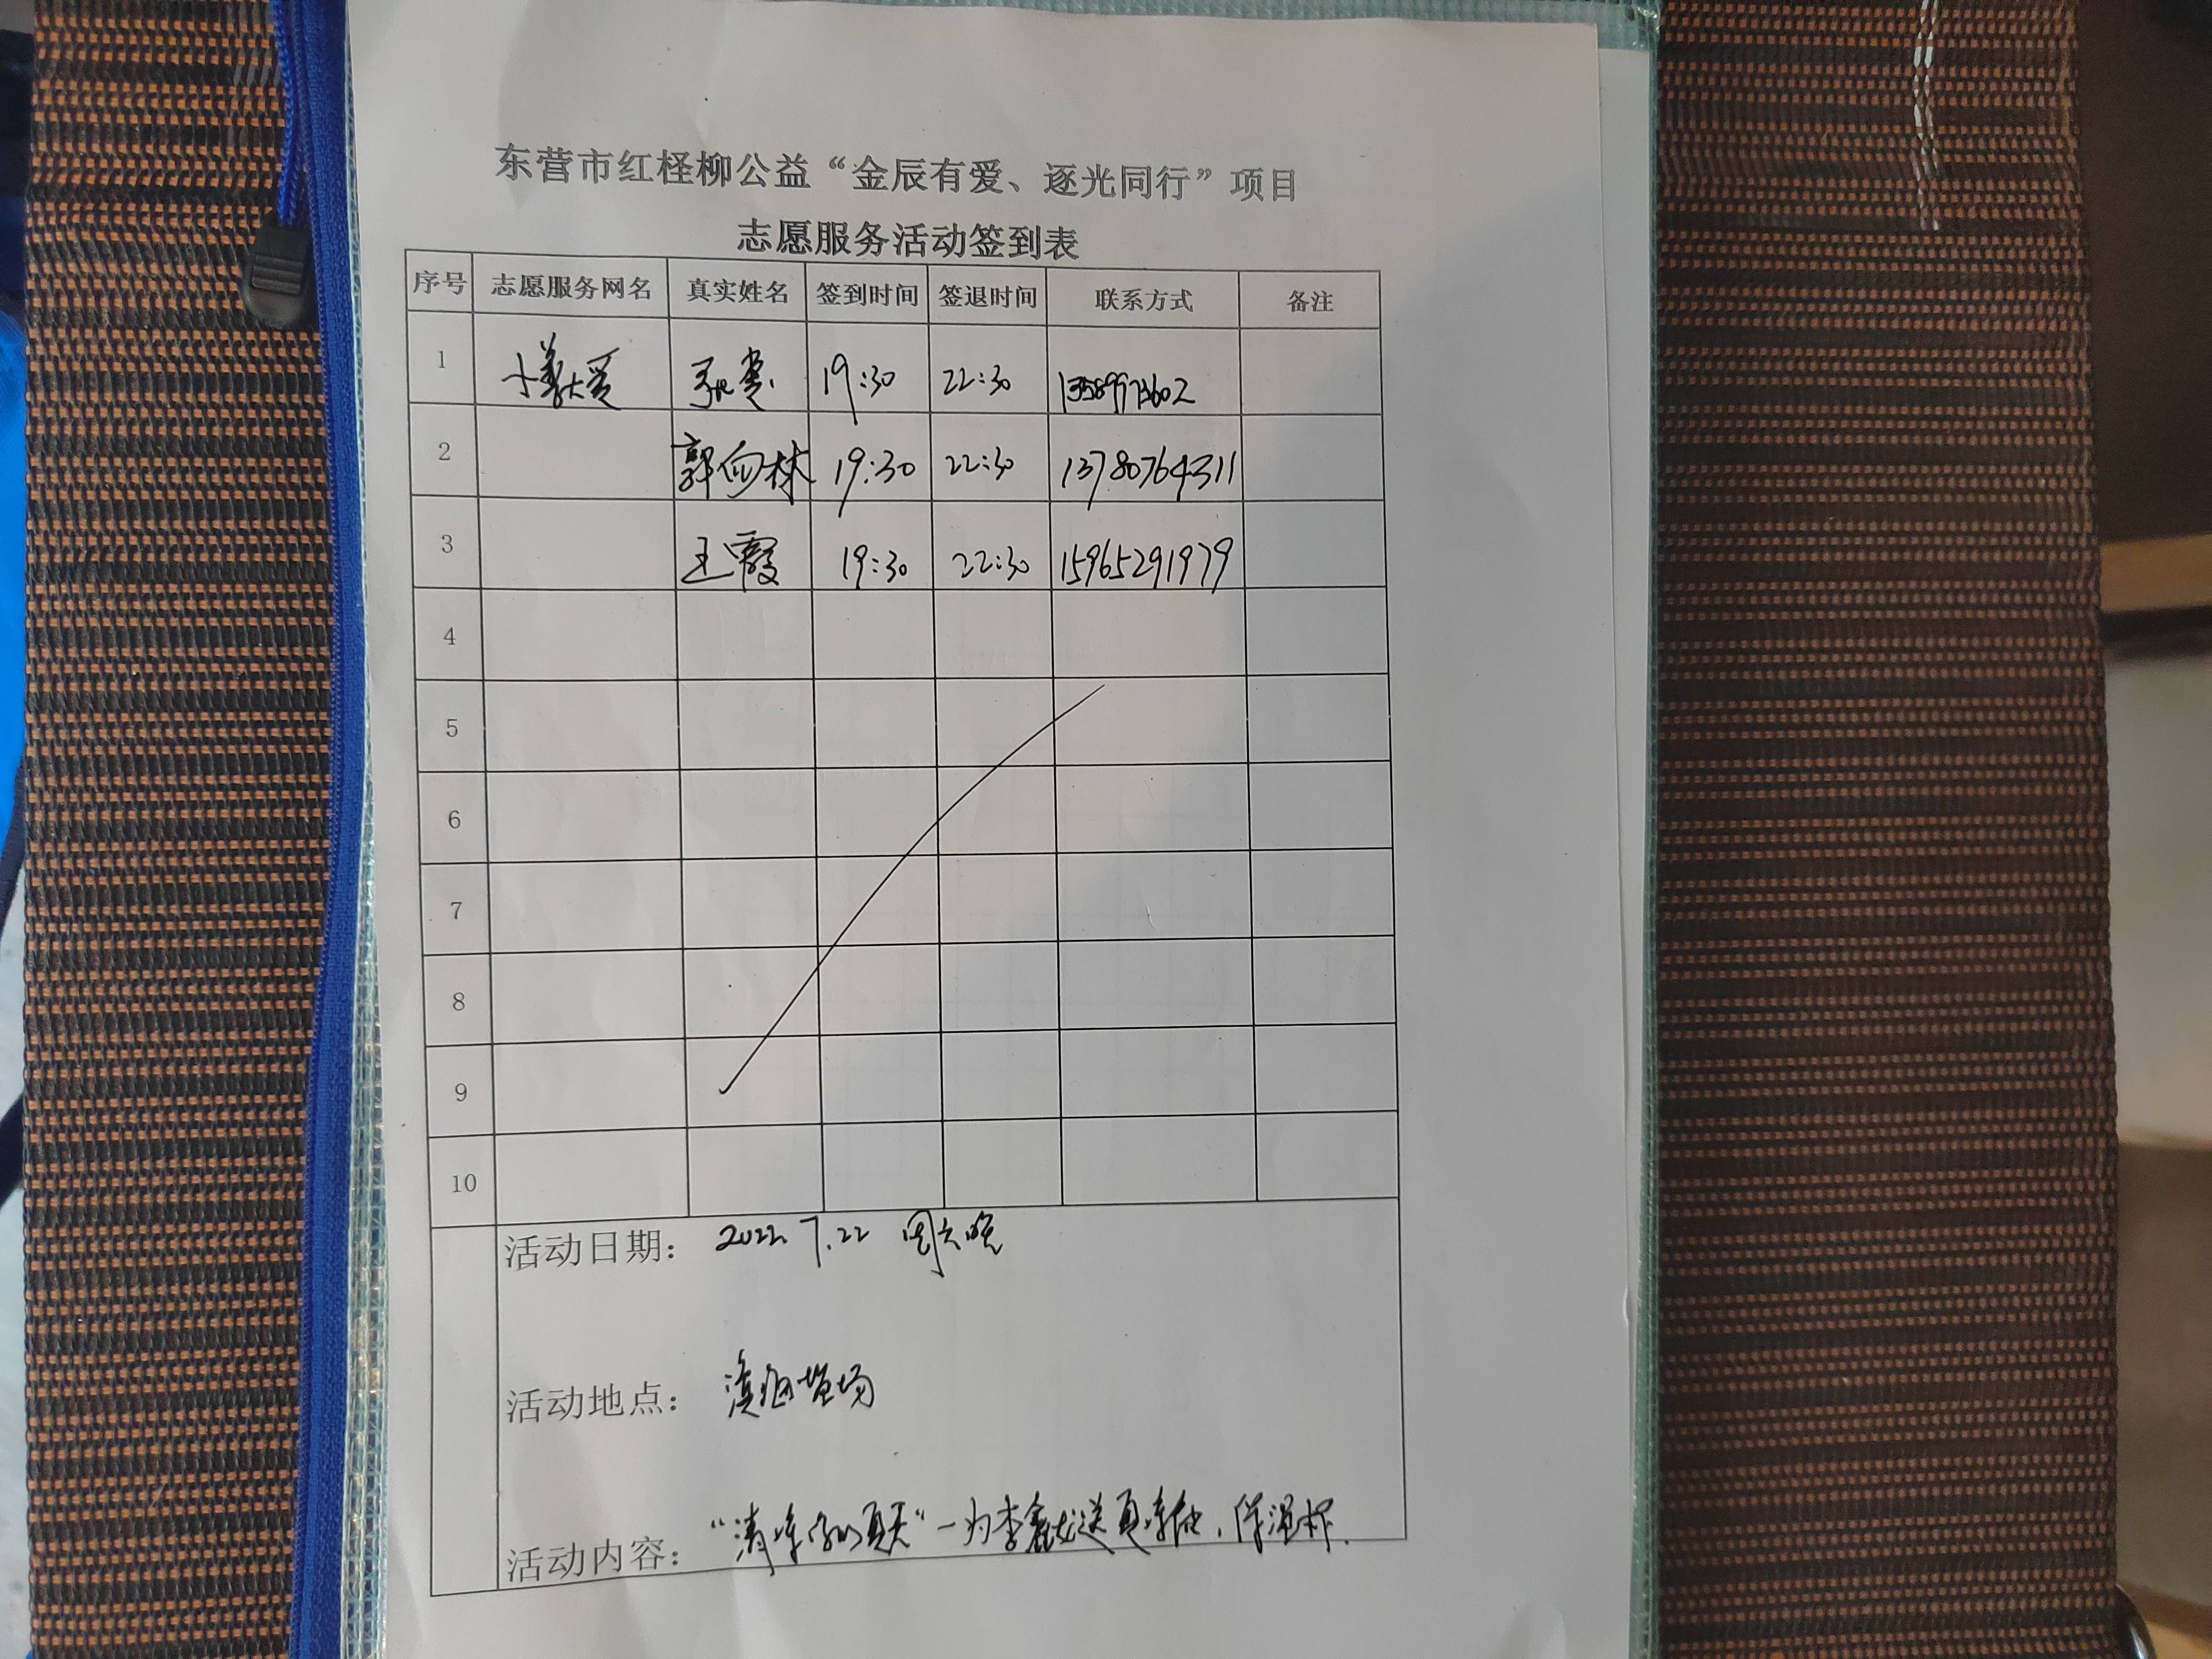 东营市红柽柳公益“金辰有爱、逐光同行”项目
志愿服务活动签到表
序号 志愿服务网名 真实姓名 签到时间 签退时间 联系方式 备注
1 小义大爱 19:30 22:30
2 郭向林 19:30 22:30 13780764311
3 王霞 19:30 22:30 15965291979
4
5
6
7
8
9
10
活动日期： 2022.7.22 周六晚
活动地点：
活动内容： “清凉你的夏天”—为李鑫龙送夏凉被，保温杯.